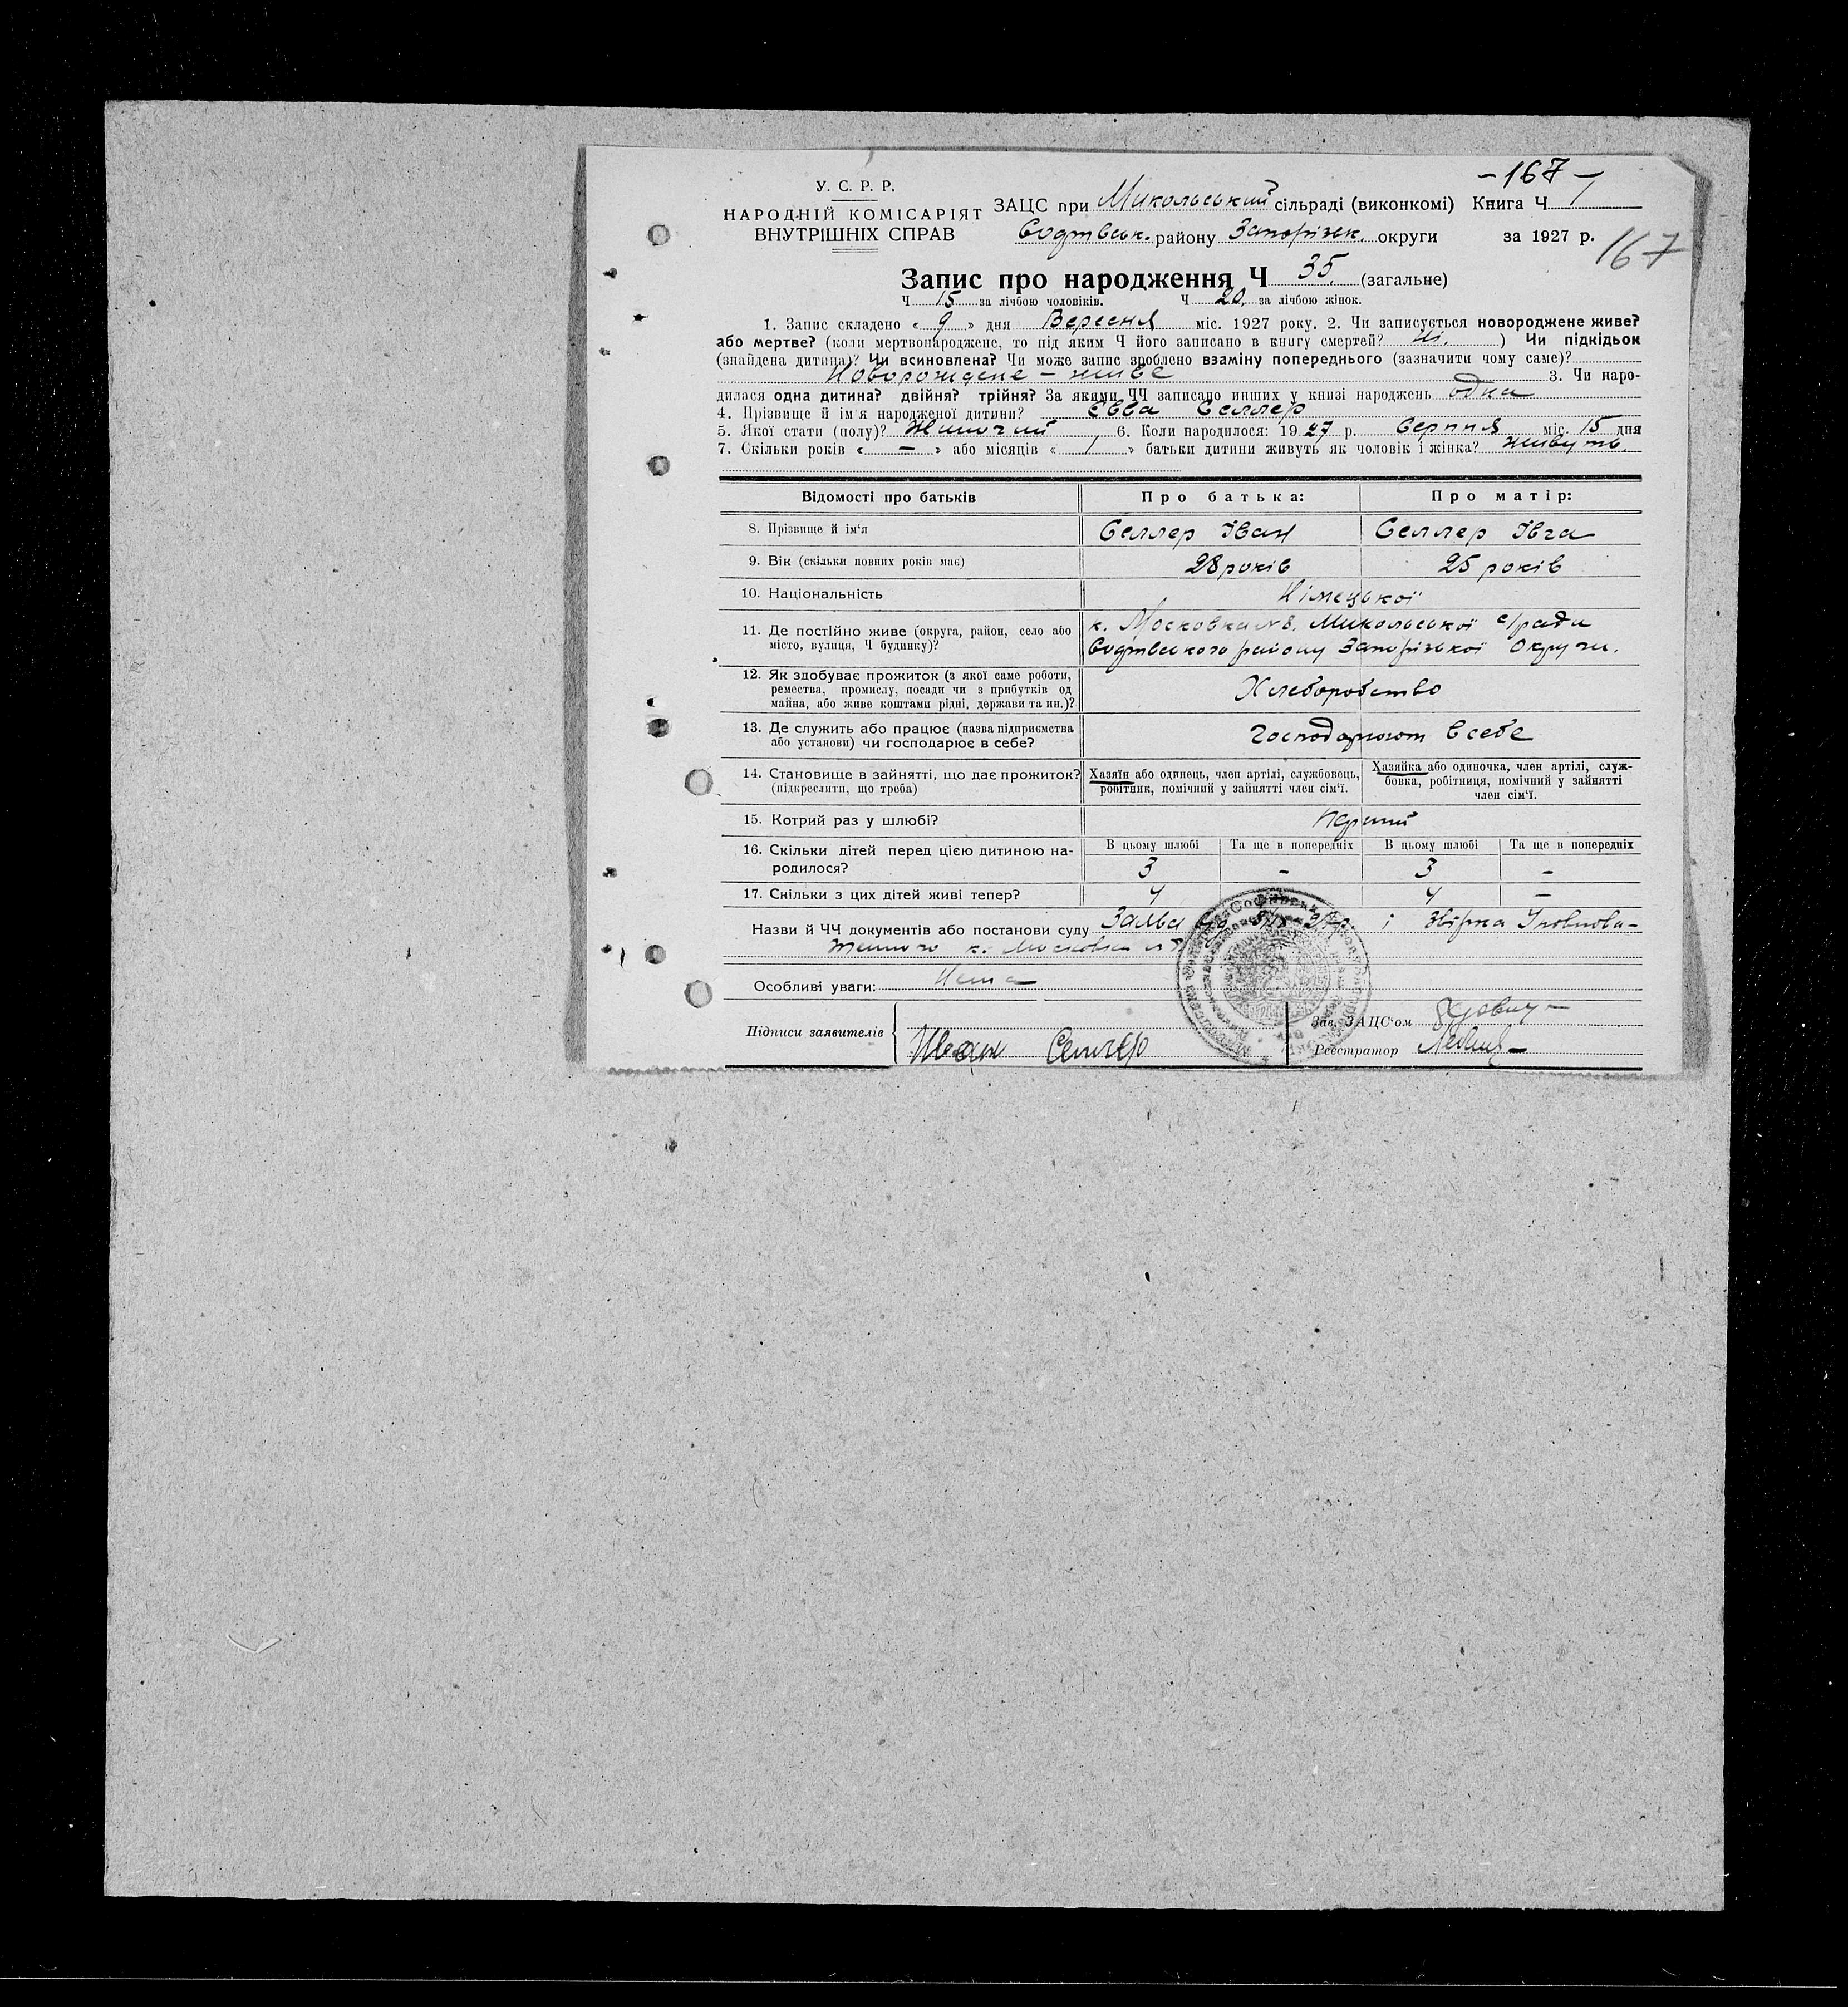 -167-
У. С. Р. Р.
НАРОДНІЙ КОМІСАРІЯТ
ВНУТРІШНІХ СПРАВ
ЗАЦС при Микольський сільраді (виконкомі) Книга Ч 1
району Запорізьк. округи за 1927 р.
167
Запис про народження Ч 35. (загальне)
Ч 15 за лічбою чоловіків. Ч 20. за лічбою жінок.
1. Запис складено « 9 » дня Вересня міс. 1927 року. 2. Чи записується новороджене живе?
або мертве? (коли мертвонароджене, то під яким Ч його записано в книгу смертей? Ні. ) Чи підкідьок
(знайдена дитина)? Чи всиновлена? Чи може запис зроблено взаміну попереднього (зазначити чому саме)?
Новорождене - живе 3. Чи наро-
дилася одна дитина? двійня? трійня? За якими ЧЧ записано инших у книзі народжень одна
4. Прізвище й ім'я народженої дитини? Евва Геллер
5. Якої стати (полу)? Жиночий 6. Коли народилося: 1927 р. Серпня міс. 15 дня
7. Скільки років « — » або місяців « / » батьки дитини живуть як чоловік і жінка? живуть.
Відомості про батьків Про батька: Про матір:
8. Прізвище й ім'я Геллер Іван Геллер Івга
9. Вік (скільки повних років має) 28 років 25 років
10. Національність Німецької
11. Де постійно живе (округа, район, село або
місто, вулиця, Ч будинку)?
к. Московка №8. Микольської с/ради
району Запорізької Округи.
12. Як здобуває прожиток (з якої саме роботи,
ремества, промислу, посади чи з прибутків од
майна, або живе коштами рідні, держави та ин.)?
Хлеборобство
13. Де служить або працює (назва підприємства
або установи) чи господарює в себе?
Господарюют в себе
14. Становище в зайнятті, що дає прожиток?
(підкреслити, що треба)
Хазяїн або одинець, член артілі, службовець,
робітник, помічний у зайнятті член сім'ї.
Хазяйка або одиночка, член артілі, служ-
бовка, робітниця, помічний у зайнятті
член сім'ї.
15. Котрий раз у шлюбі? Перший
16. Скільки дітей перед цією дитиною на-
родилося?
В цьому шлюбі Та ще в попередніх В цьому шлюбі Та ще в попередніх
3 - 3 -
17. Скільки з цих дітей живі тепер? 4 4 -
Назви й ЧЧ документів або постанови суду Заява і звірка Уповнова-
женого к. Московка №
Особливі уваги: Нема
Підписи заявителів Иван
Зав. ЗАЦС'ом
Реєстратор